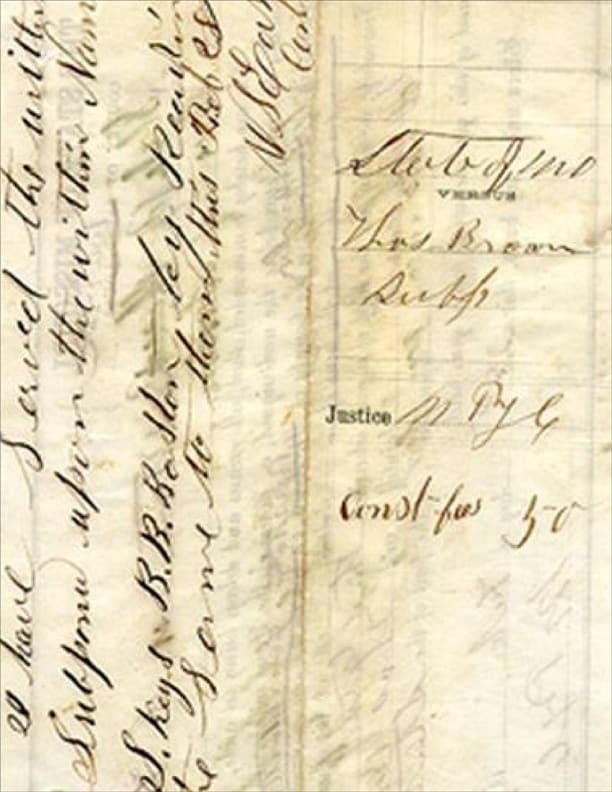 I have Served the writt
Subpona upon the within Nam
S. Keys B.B. Boston by Readin
the Same to them this Feb 28
State of Mo
VERSUS
Thos Brown
Subp
Justice
Const fees 50